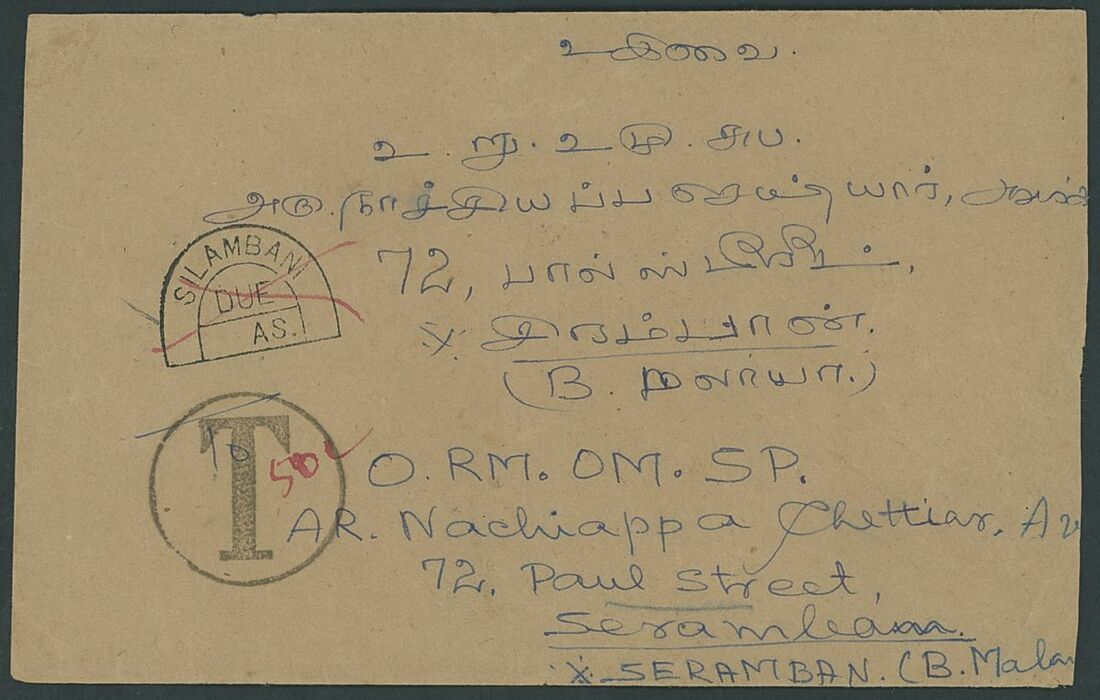 உ சிவமயம்.
அரு. நாச்சியப்ப செட்டியார்,
72, பால் ஸ்டிரீட்,
சிரம்பான்.
(B. மலாயா.)
SILAMBANI
DUE
AS.
T
To
50c
O. RM. OM. SP.
AR. Nachiappa Chettiar, Av
72, Paul Street,
Seramban.
X SERAMBAN. (B. Mala